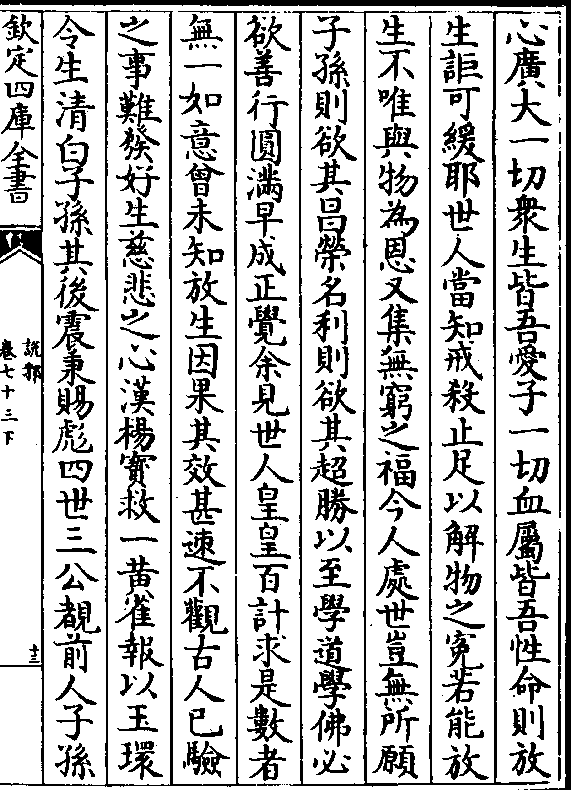 心廣大一切衆生皆吾愛子一切血屬皆吾性命則放
生詎可緩耶世人當知戒殺止足以解物之寃若能放
生不唯與物為恩又集無窮之福今人處世豈無所願
子孫則欲其昌榮名利則欲其超勝以至學道學佛必
欲善行圓滿早成正覺余見世人皇皇百計求是數者
無一如意曾未知放生因果其效甚速不觀古人已驗
之事難發好生慈悲之心漢楊寳救一黄雀報以玉環
令生清白子孫其後震秉賜彪四世三公覩前人子孫
欽定四庫全書
說郛
卷七十三下
十三